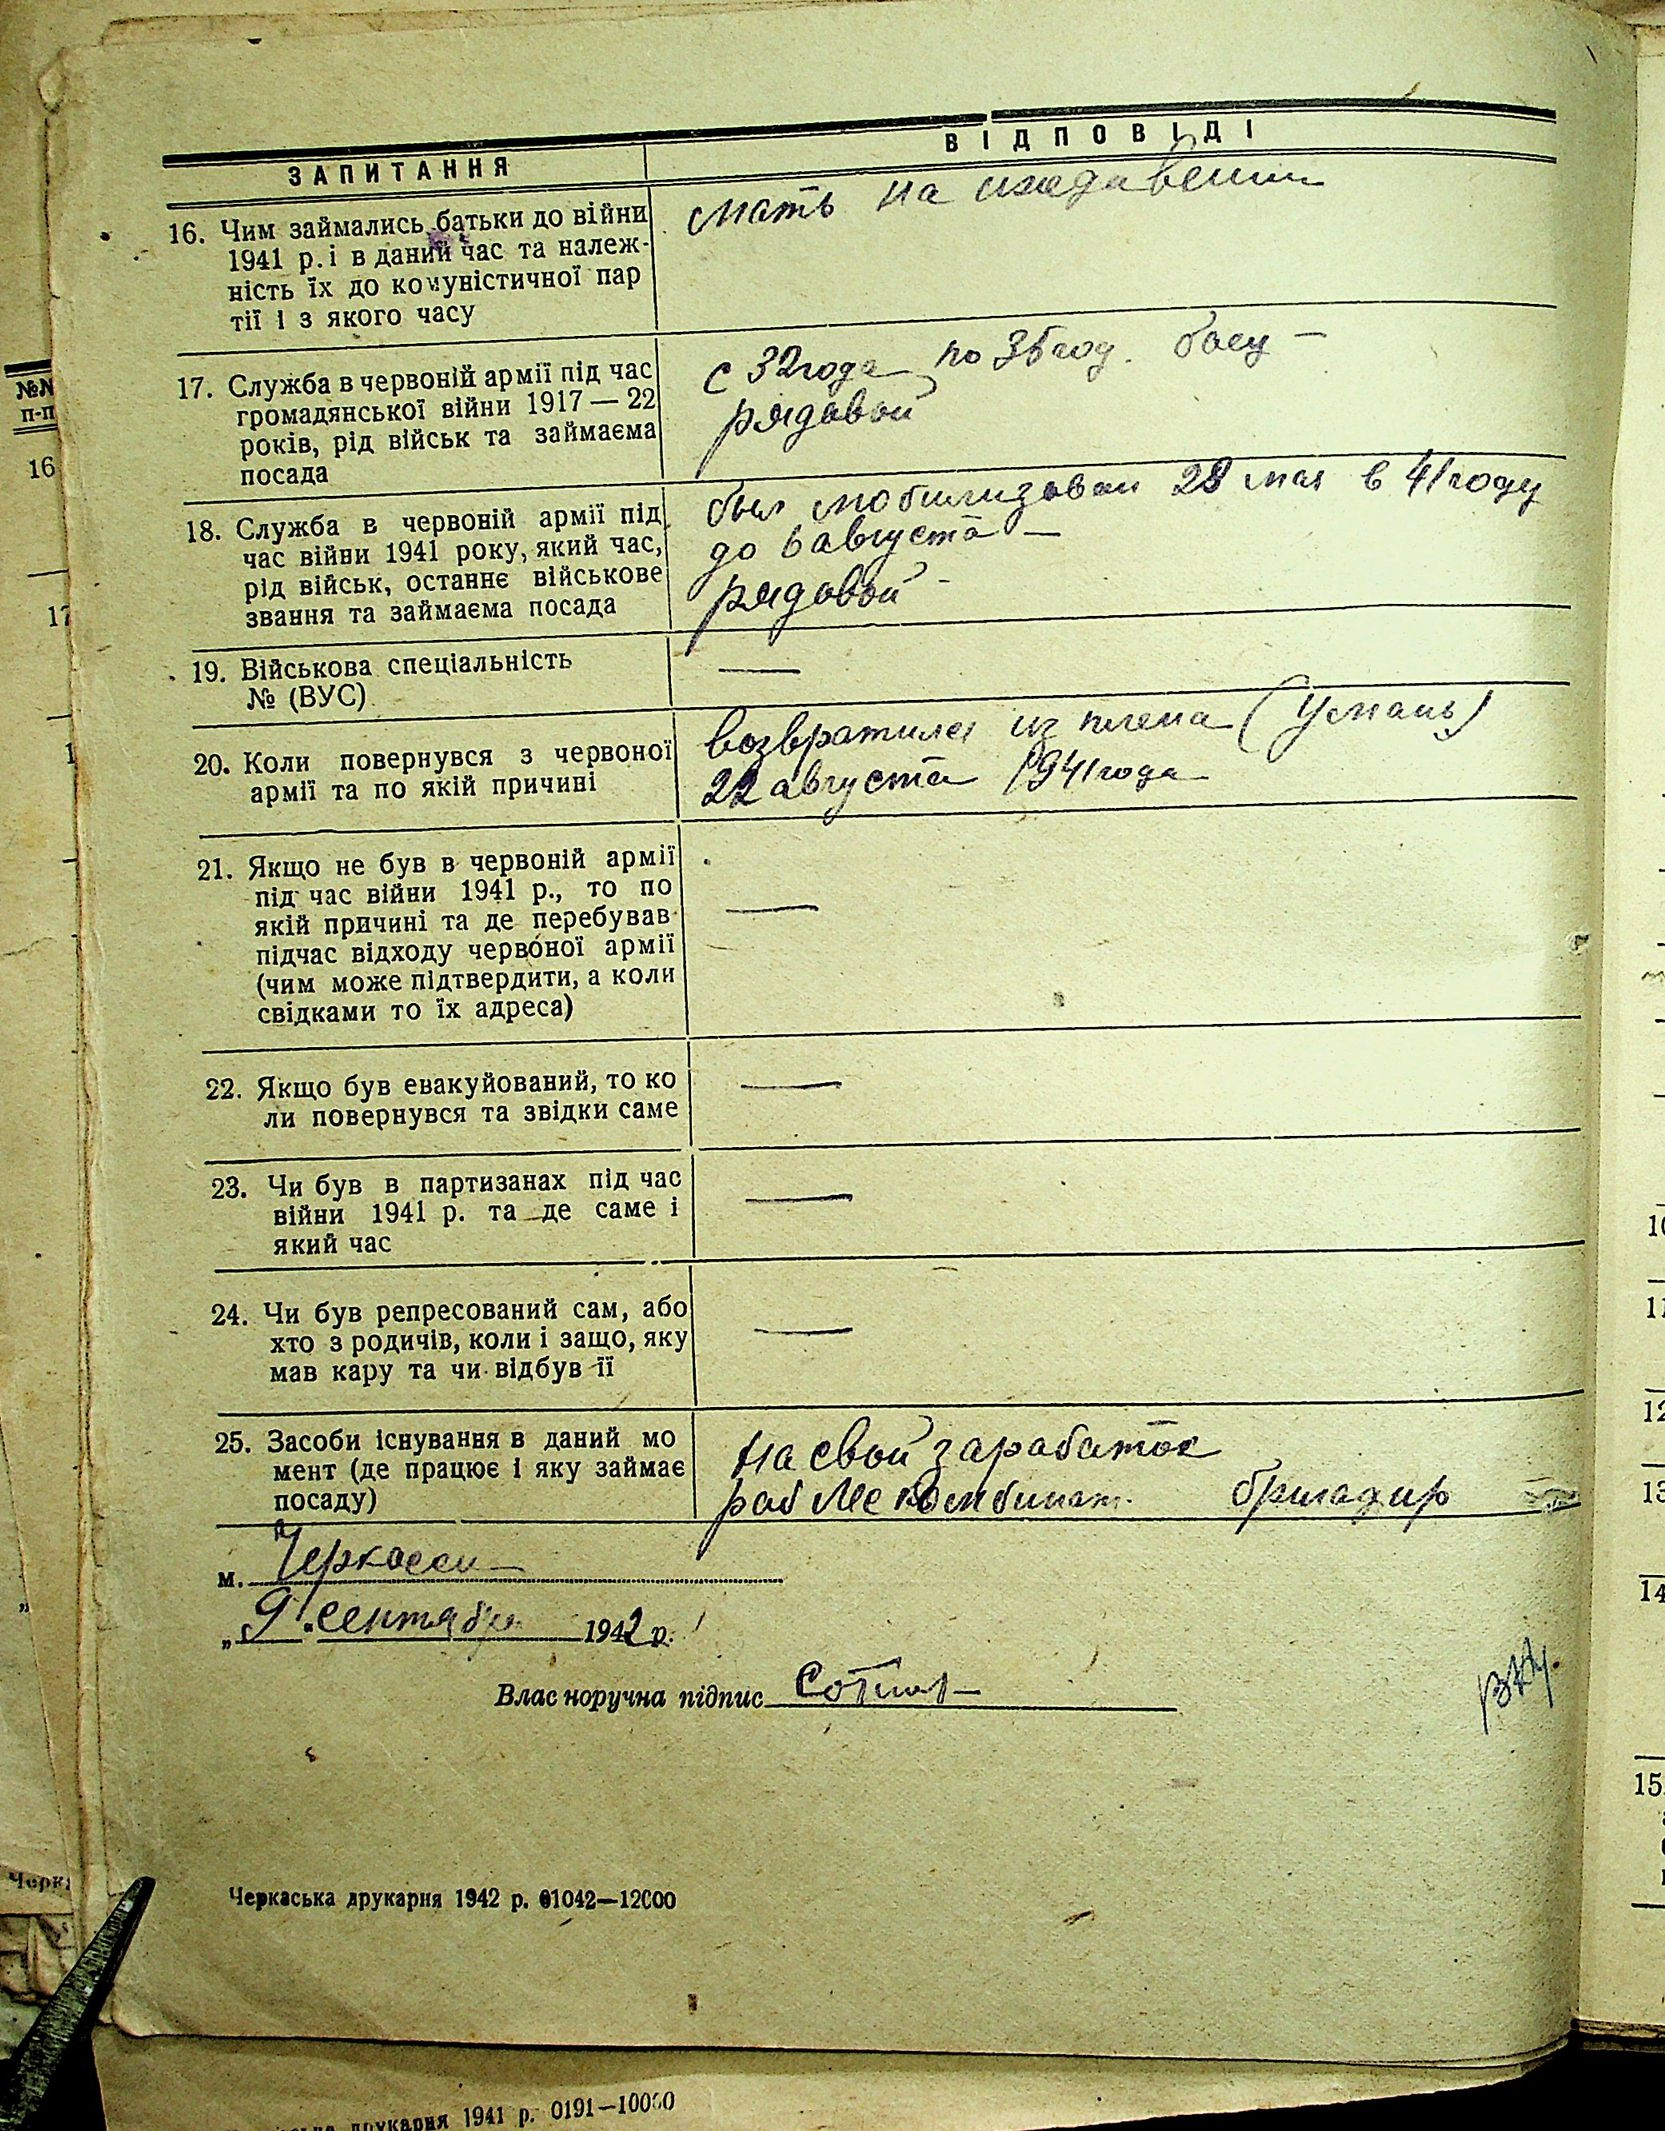 ЗАПИТАННЯ
ВІДПОВІДІ
16. Чим займались батьки до війни
1941 р. і в даний час та належ-
ність їх до комуністичної пар
тії і з якого часу
мать на иждевении
17. Служба в червоній армії під час
громадянської війни 1917 — 22
років, рід військ та займаєма
посада
с 32 года по 36 год. боец —
рядовой
18. Служба в червоній армії під
час війни 1941 року, який час,
рід військ, останнє військове
звання та займаєма посада
был мобилизован 28 мая в 41 году
до 6 августа —
рядовой -
19. Військова спеціальність
№ (ВУС)
—
20. Коли повернувся з червоної
армії та по якій причині
возвратился из плена (Умань)
22 августа 1941 года
21. Якщо не був в червоній армії
під час війни 1941 р., то по
якій причині та де перебував
підчас відходу червоної армії
(чим може підтвердити, а коли
свідками то їх адреса)
—
22. Якщо був евакуйований, то ко
ли повернувся та звідки саме
—
23. Чи був в партизанах під час
війни 1941 р. та де саме і
який час
—
24. Чи був репресований сам, або
хто з родичів, коли і защо, яку
мав кару та чи відбув її
—
25. Засоби існування в даний мо
мент (де працює і яку займає
посаду)
на свой заработок
раб бригадир
м. Черкасси
„9" сентября 1942 р.
Власноручна підпис
Черкаська друкарня 1942 р. 01042—12000
друкарня 1941 р. 0191—10000
№№
п-п
16
17
1
Черка
10
11
12
13
14
15